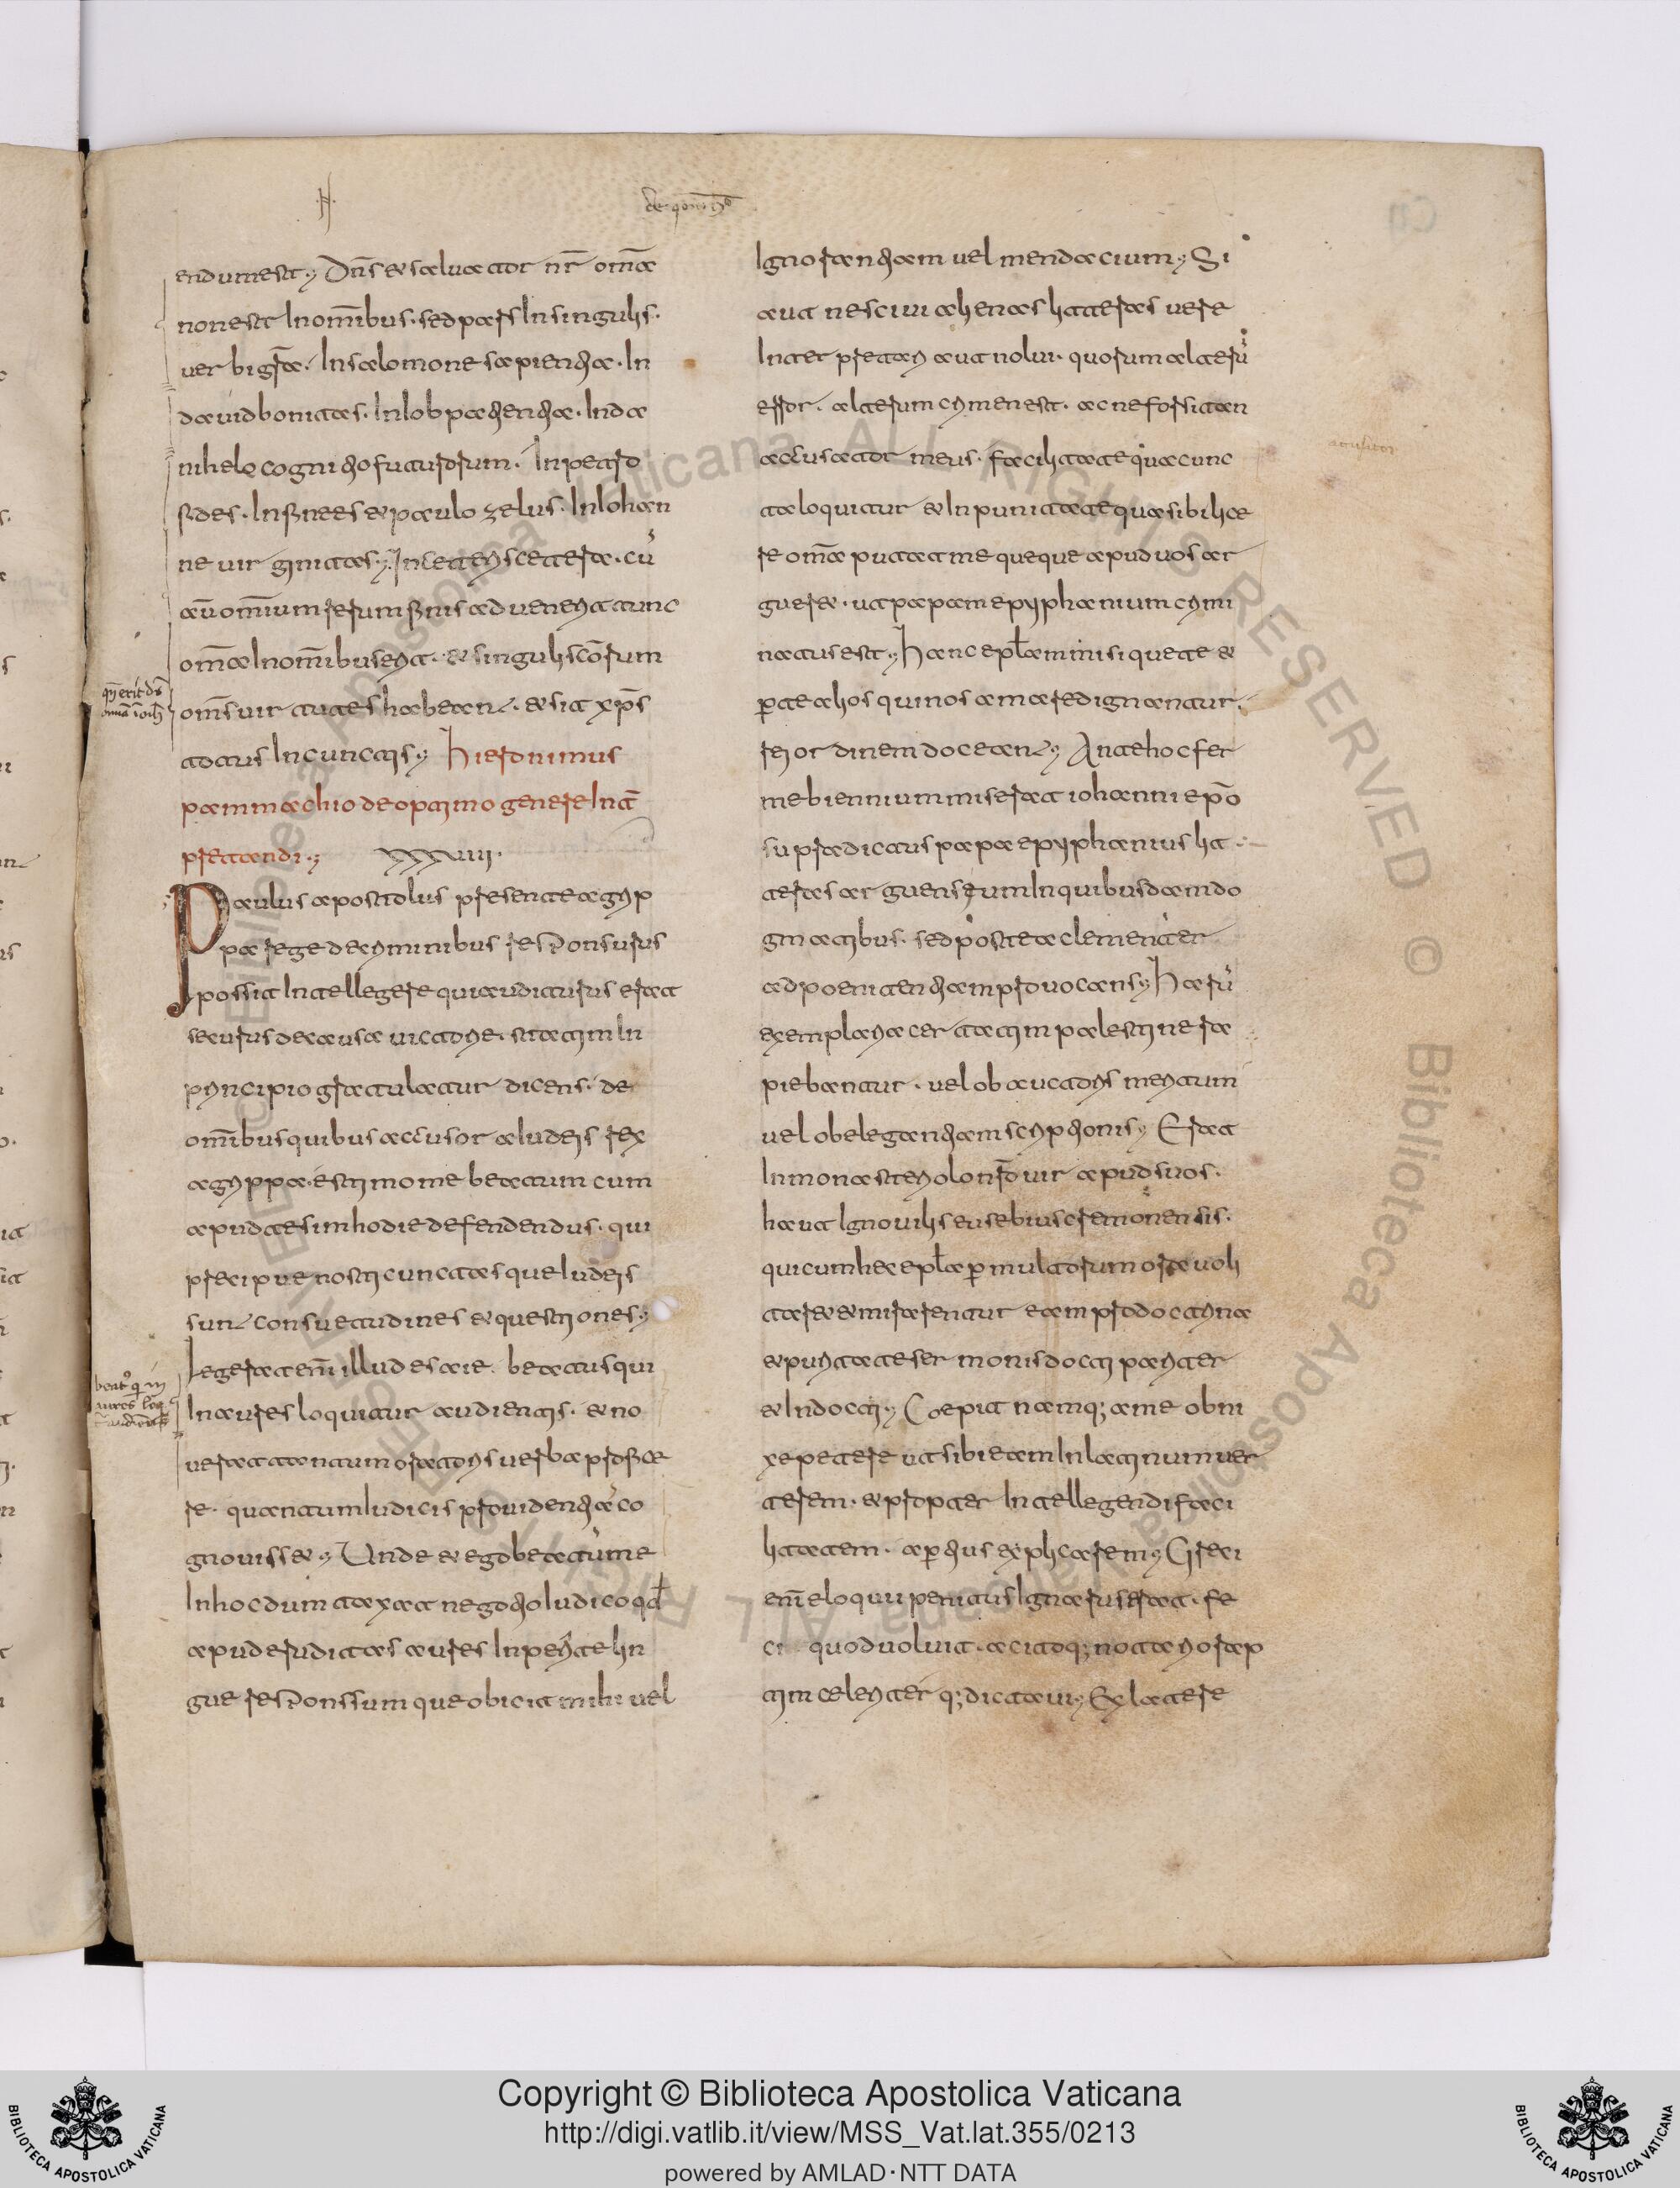 de optimo
endum est; Dn̄s et saluator nr̄ om̄a
non est In om̄ibus. sed pars In singulis.
uerbi gr̄a. In salomone sapientia. In
dauid bonitas. In Iob patientia. In da
nihelo cognitio futurorum. In petro
fides. In finees et paulo zelus. In Iohan
ne uirginitas; In ceteris cetera. cū
aūt omnium rerum finis aduenerit tunc
om̄a In om̄ibus erit. et singuli scōrum
om̄s uirtutes habeant. et sit xp̄s
totus In cunctis; Hieronimus
pammachio de optimo genere Int̄
pretandi; XXXVIII.
Paulus apostolus presente agrip
pa rege de criminibus responsurus
possit Intellegere qui auditurus erat
securus de causae uictorie. statim In
principio gratulatur dicens. de
om̄ibus quibus accusor a Iudeis rex
agrippa. estimo me beatum cum
apud te sim hodie defendendus. qui
precipue nosti cunctas que Iudeis
sunt consuetudines et questiones;
Legerat enī illud esaie. beatus qui
In aures loquitur audientis. et no
uerat tantum oratoris uerba profice
re. quantum Iudicis prouidentia co
gnouisset; Unde et ego beatum me
In hoc dum taxat negotio Iudico qd̄
apud eruditas aures Inperite lin
gue responssum que obicit mihi uel
Ignorantiam uel mendacium; Si
aut nesciui alienas litteras uere
Interpretari aut nolui. quorum alterū
error. alterum crimen est. ac ne forsitan
accusator meus. facilitate qua cunc
ta loquitur et Inpunitate qua sibi lice
re om̄a putat me queque apud uos ar
gueret. ut papam epyphanium crimi
natus est; Hanc epl̄am misi que te et
p̄ te alios qui nos amare dignantur.
rei ordinem doceant; Ante hoc fer
me biennium miserat iohanni ep̄o
supradictus papa epyphanius lit
teras arguens eum In quibusdam do
gmatibus. sed postea clementer
ad poenitentiam prouocans; Harū
exemplaria certatim palestine ra
piebantur. uel ob auctoris meritum
uel ob elegantiam scriptionis; Erat
In monasterio nr̄o uir apud suos.
haut Ignouilis eusebius cremonensis.
qui cum hec epl̄a p̄ multorum ora uoli
taret et mirarentur eam pro doctrina
et puritate sermonis docti pariter
et Indocti; Coepit namq; a me obni
xe petere ut sibi eam In latinum uer
terem. et propter Intellegendi faci
litatem. ap̄tius explicarem; Greci
enī eloquii penitus Ignarus erat. fe
ci quod uoluit. accitoq; notario rap
tim celeriterq; dictaui; Ex latere